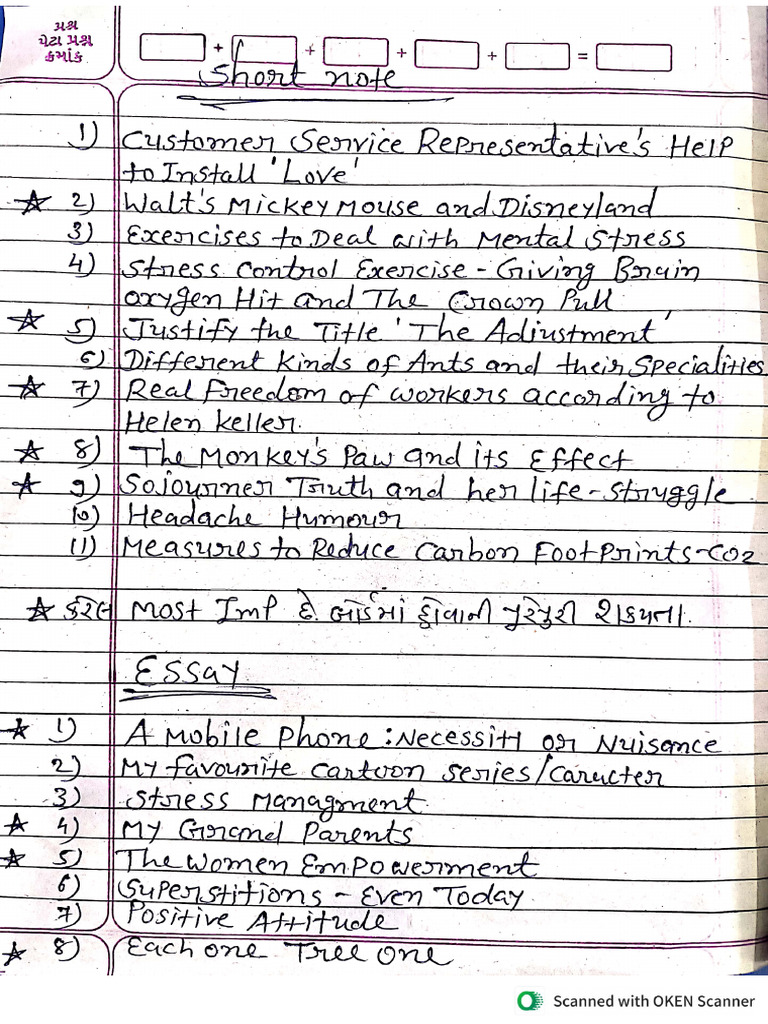 પ્રશ્ન
પેટા પ્રશ્ન
ક્રમાંક
+ + + + =
Short note
1) Customer Service Representative's Help
to Install 'Love'
☆ 2) Walt's Mickey Mouse and Disneyland
3) Exercises to Deal with Mental Stress
4) Stress Control Exercise - Giving Brain
Oxygen Hit and The Crown Pull
☆ 5) Justify the Title 'The Adjustment'
6) Different Kinds of Ants and their Specialities
☆ 7) Real Freedom of workers according to
Helen Keller.
☆ 8) The Monkey's Paw and its Effect
☆ 9) Sojourner Truth and her life-Struggle
10) Headache Humour
11) Measures to Reduce Carbon Footprints-CO2
☆ કરેલ Most Imp છે. બોર્ડમાં હોવાની પુરેપુરી શક્યતા.
Essay
☆ 1) A Mobile Phone: Necessitl or Nuisance
2) My favourite cartoon series/caructer
3) Stress Managment
☆ 4) My Grand Parents
☆ 5) The Women Empowerment
6) Superstitions - Even Today
7) Positive Attitude
☆ 8) Each one Tree One
Scanned with OKEN Scanner